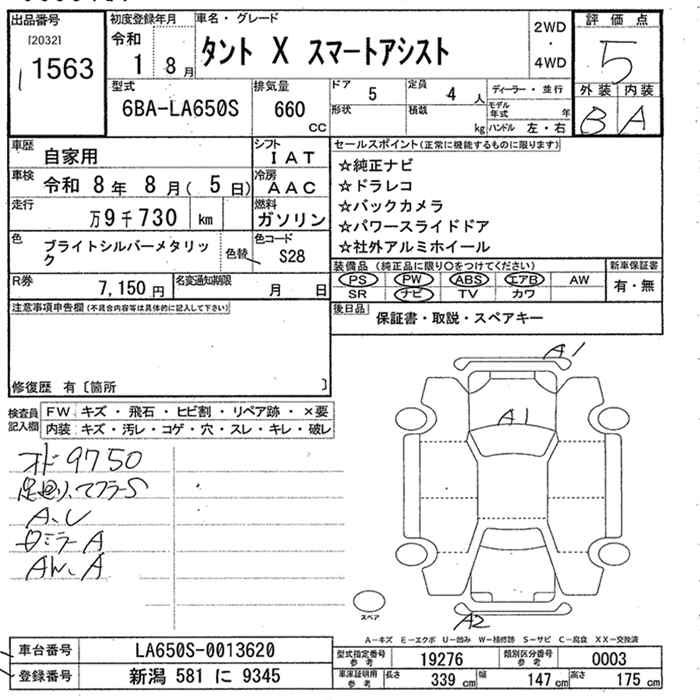 出品番号
[2032]
1563
初度登録年月
令和
1 8月
車名・グレード
タント X スマートアシスト
2WD
・
4WD
評価点
5
外装 内装
B A
型式
6BA-LA650S
排気量
660
CC
ドア 5
定員 4 人
形状
積載 kg
ディーラー・並行
モデル年式 年
ハンドル 左・右
車歴 自家用
シフト IAT
車検 令和 8年 8月( 5日)
冷房 AAC
走行 万9千730 km
燃料 ガソリン
色 ブライトシルバーメタリック
色替
色コード S28
R券 7,150円
名変通知期限 月 日
セールスポイント(正常に機能するものに限ります)
☆純正ナビ
☆ドラレコ
☆バックカメラ
☆パワースライドドア
☆社外アルミホイール
装備品 (純正品に限り○をつけてください)
PS PW ABS エアB AW
SR ナビ TV カワ
新車保証書
有・無
後日品 保証書・取説・スペアキー
注意事項申告欄(不具合内容等は具体的に記入して下さい)
修復歴 有〔箇所 〕
検査員記入欄
FW キズ・飛石・ヒビ割・リペア跡・×要
内装 キズ・汚レ・コゲ・穴・スレ・キレ・破レ
オド9750
足回り、マフラーS
A、U
ロミラーA
AW、A
A1
A1
A2
スペア
A-キズ E-エクボ U-凹み W-補修跡 S-サビ C-腐食 XX-交換済
車台番号 LA650S-0013620
登録番号 新潟 581 に 9345
型式指定番号 参考 19276
類別区分番号 参考 0003
車庫証明用 参考 長さ 339 cm 幅 147 cm 高さ 175 cm